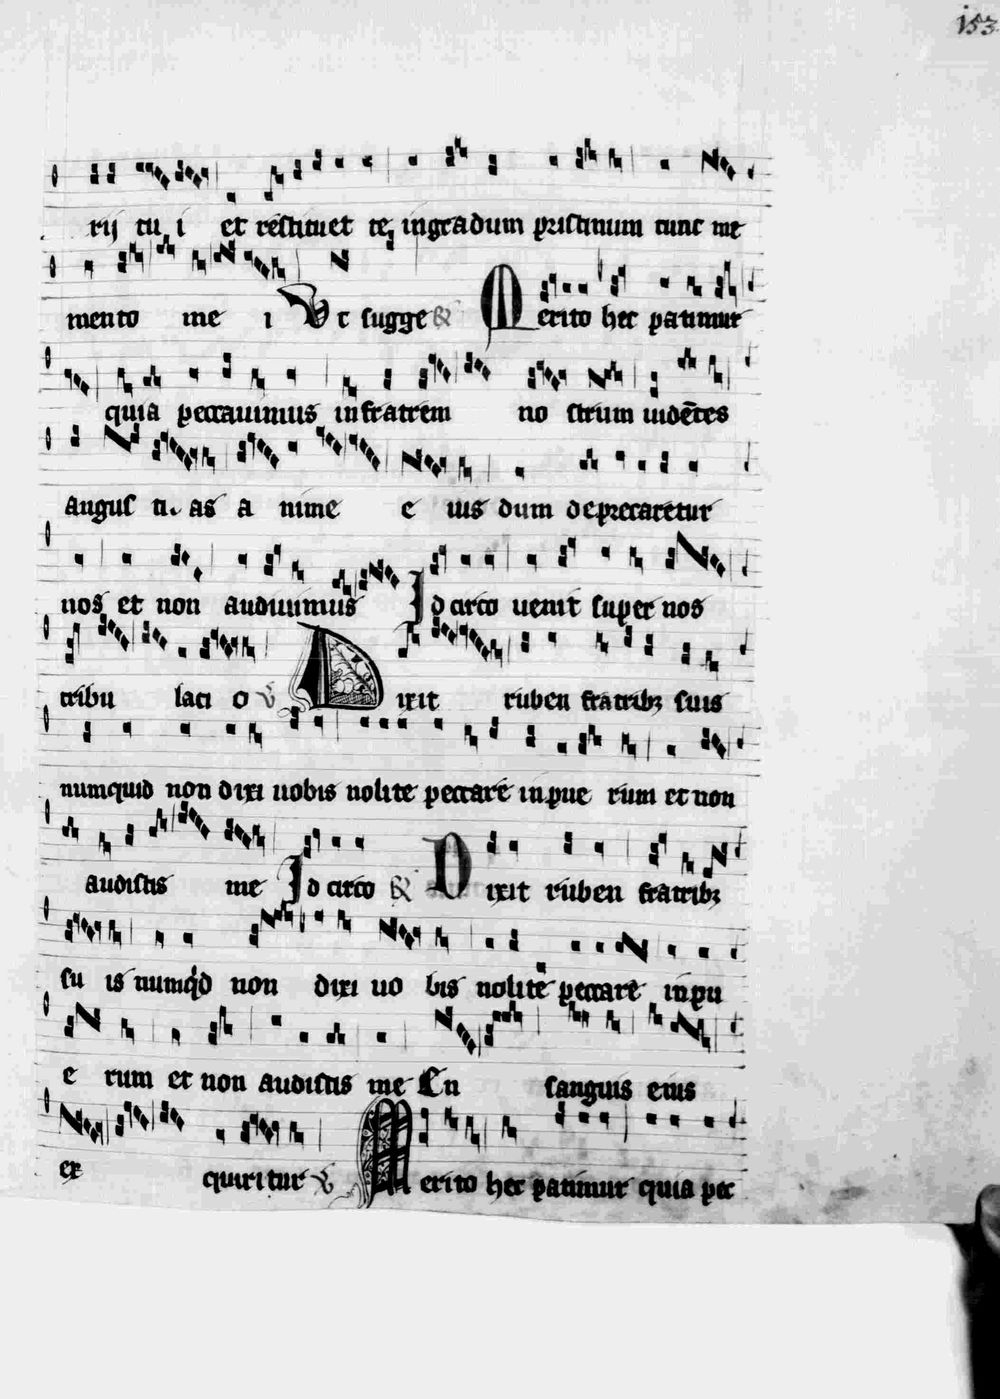 153
rij tu i et restituet te ingradum pristinum tunc me
mento me i Ut sugge R Merito hec patimur
quia peccauimus infratrem no strum uidētes
angus ti as a nime e ius dum deprecaretur
nos et non audiuimus Id circo uenit super nos
tribu laci o V Dixit ruben fratribꝫ suis
numquid non dixi uobis nolite peccare inpue rum et non
audistis me Id circo R Dixit ruben fratribꝫ
su is numqͥd non dixi uo bis nolite peccare inpu
e rum et non audistis me En sanguis eius
ex quiritur V Merito hec patimur quia pec